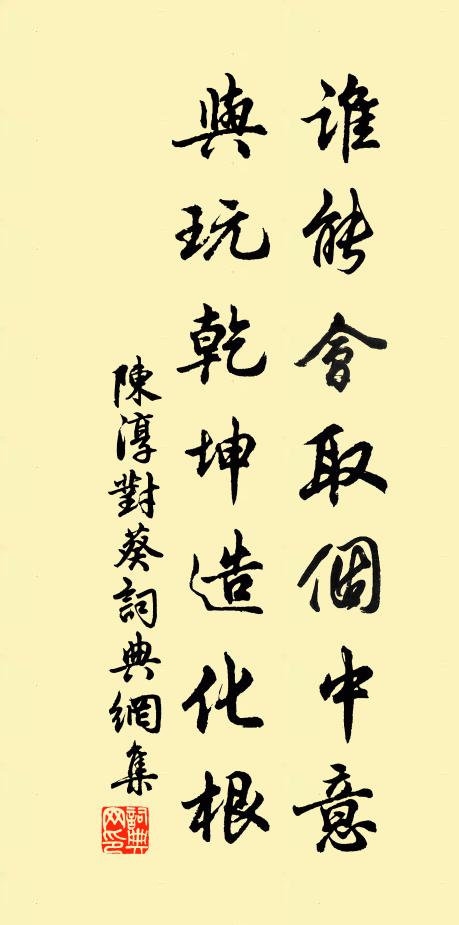 誰能會取個中意
與玩乾坤造化根
陳淳對葵詞典網集
詞典網印